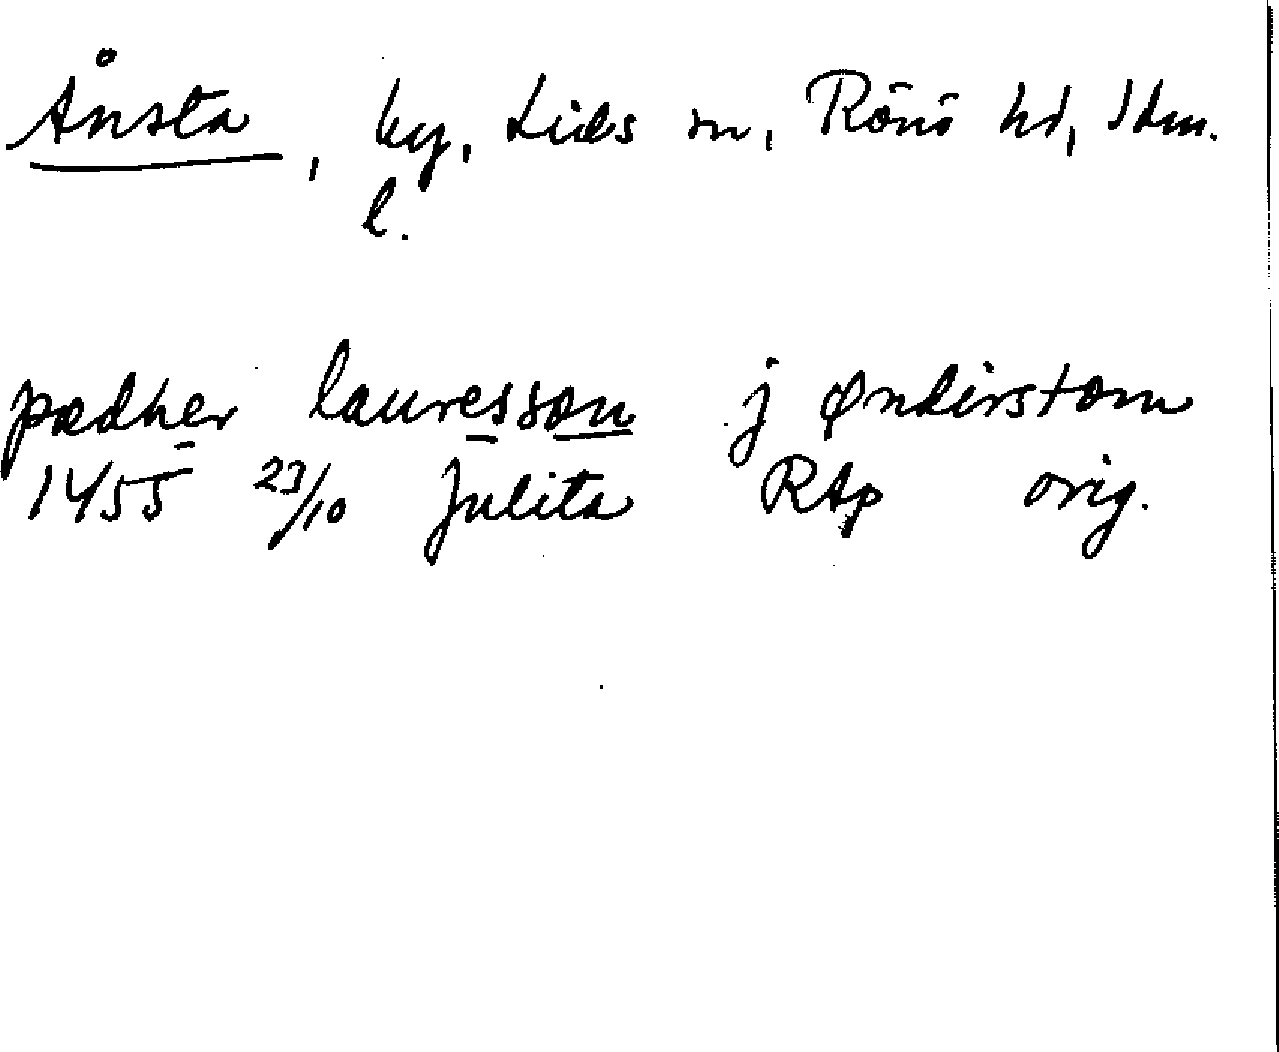 Ånsta, by, Lids sn, Rönö hd, Sdm.
l.
pædher lauresson j ønderstom
1455 23/10 Julita RAp orig.